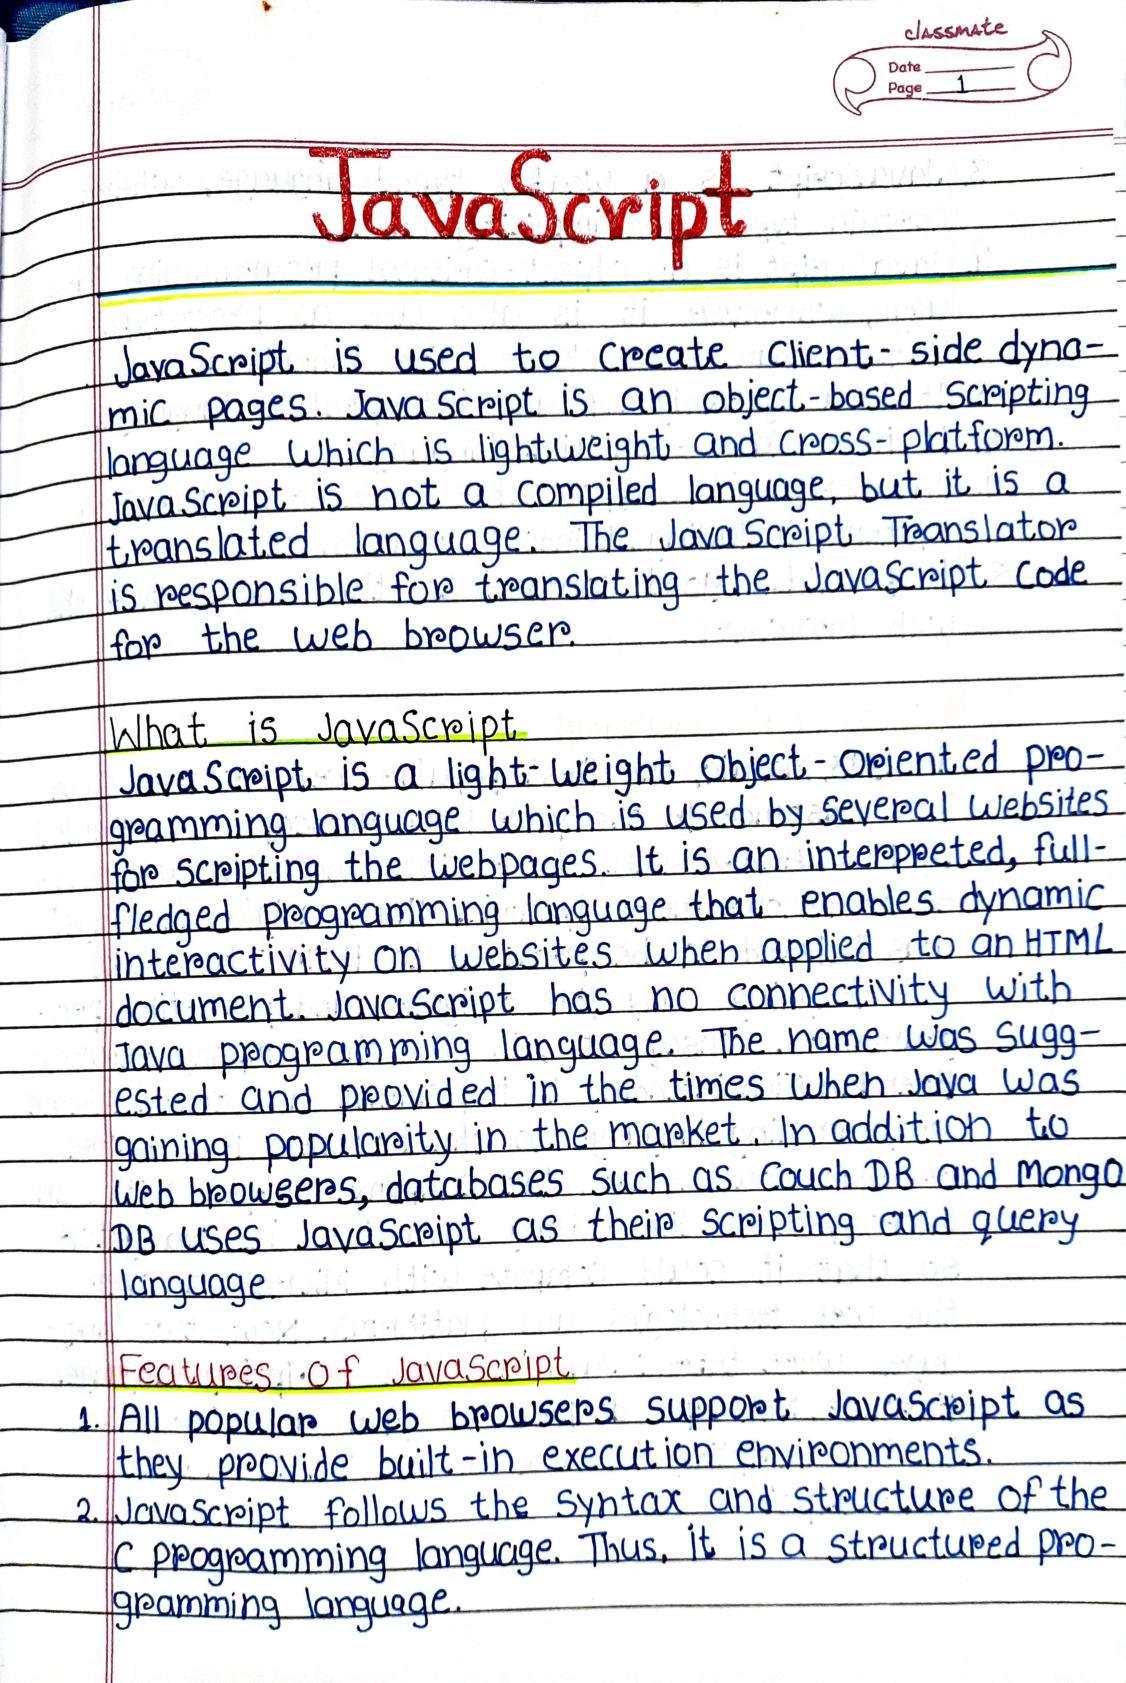 classmate
Date
Page 1
JavaScript
JavaScript is used to create client-side dyna-
mic pages. JavaScript is an object-based scripting
language which is lightweight and cross-platform.
JavaScript is not a compiled language, but it is a
translated language. The JavaScript Translator
is responsible for translating the JavaScript code
for the web browser.
What is JavaScript
JavaScript is a light-weight object-oriented pro-
gramming language which is used by several websites
for scripting the webpages. It is an interpreted, full-
fledged programming language that enables dynamic
interactivity on websites when applied to an HTML
document. JavaScript has no connectivity with
Java programming language. The name was sugg-
ested and provided in the times when Java was
gaining popularity in the market. In addition to
web browsers, databases such as Couch DB and Mongo
DB uses JavaScript as their scripting and query
language.
Features of JavaScript
1. All popular web browsers support JavaScript as
they provide built-in execution environments.
2. JavaScript follows the syntax and structure of the
C programming language. Thus, it is a structured pro-
gramming language.